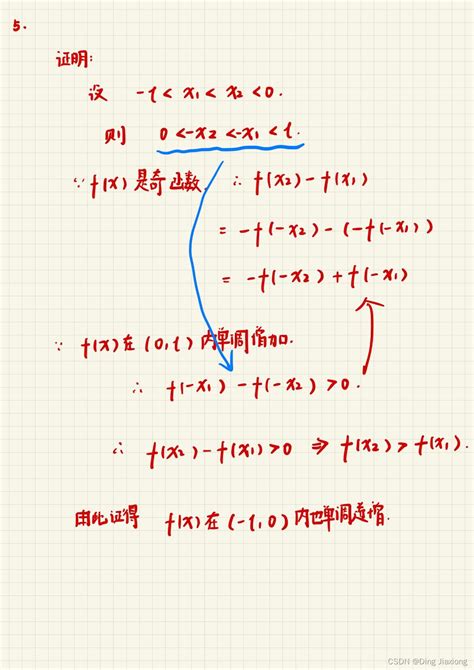 5.
证明:
设 -l < x₁ < x₂ < 0.
则 0 < -x₂ < -x₁ < l.
∵ f(x) 是奇函数, ∴ f(x₂) - f(x₁)
= -f(-x₂) - (-f(-x₁))
= -f(-x₂) + f(-x₁)
∵ f(x) 在 (0, l) 内单调增加.
∴ f(-x₁) - f(-x₂) > 0.
∴ f(x₂) - f(x₁) > 0 ⇒ f(x₂) > f(x₁).
由此证得 f(x) 在 (-l, 0) 内也单调递增.
CSDN @Ding Jiaxiong